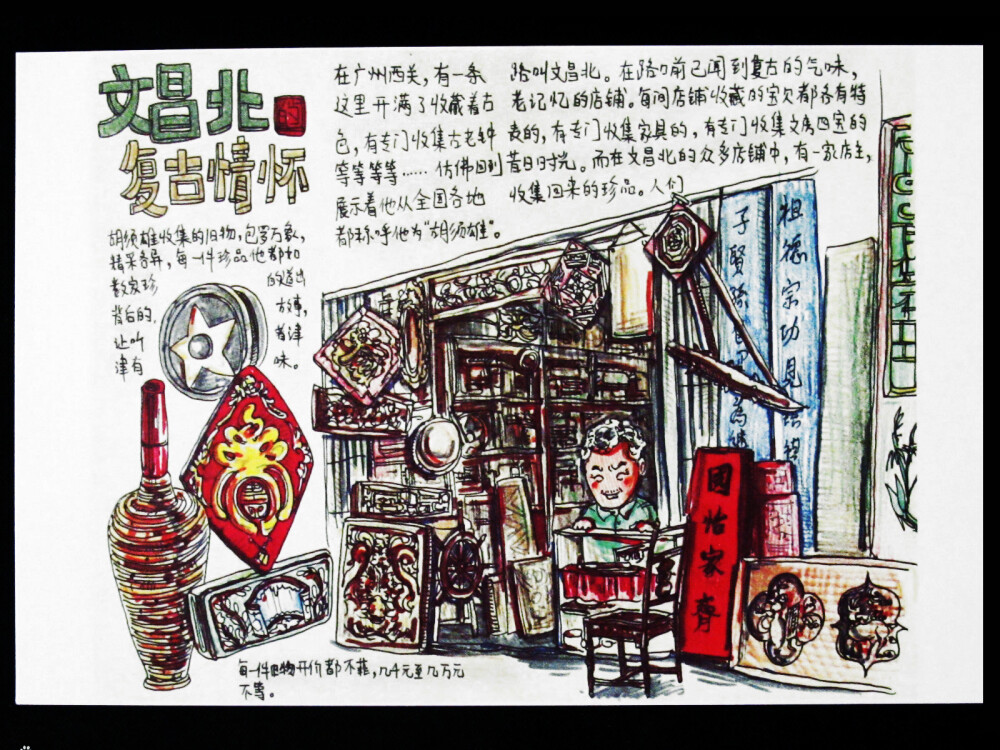 文昌北的
复古情怀
在广州西关，有一条 路叫文昌北。在路口前已闻到复古的气味，
这里开满了收藏着古 老记忆的店铺。每间店铺收藏的宝贝都各有特
色，有专门收集古老钟 表的，有专门收集家具的，有专门收集文房四宝的
等等等等…… 仿佛回到 昔日时光。而在文昌北的众多店铺中，有一家店主，
展示着他从全国各地 收集回来的珍品。人们
都称呼他为“胡须雄”。
胡须雄收集的旧物，包罗万象，
精采各异，每一件珍品他都和
数家珍 的道出
背后的 故事，
让听 者津
津有 味。
祖德宗功見
子賢孫
為
國怡家齊
每一件旧物开价都不菲，几千元至几万元
不等。